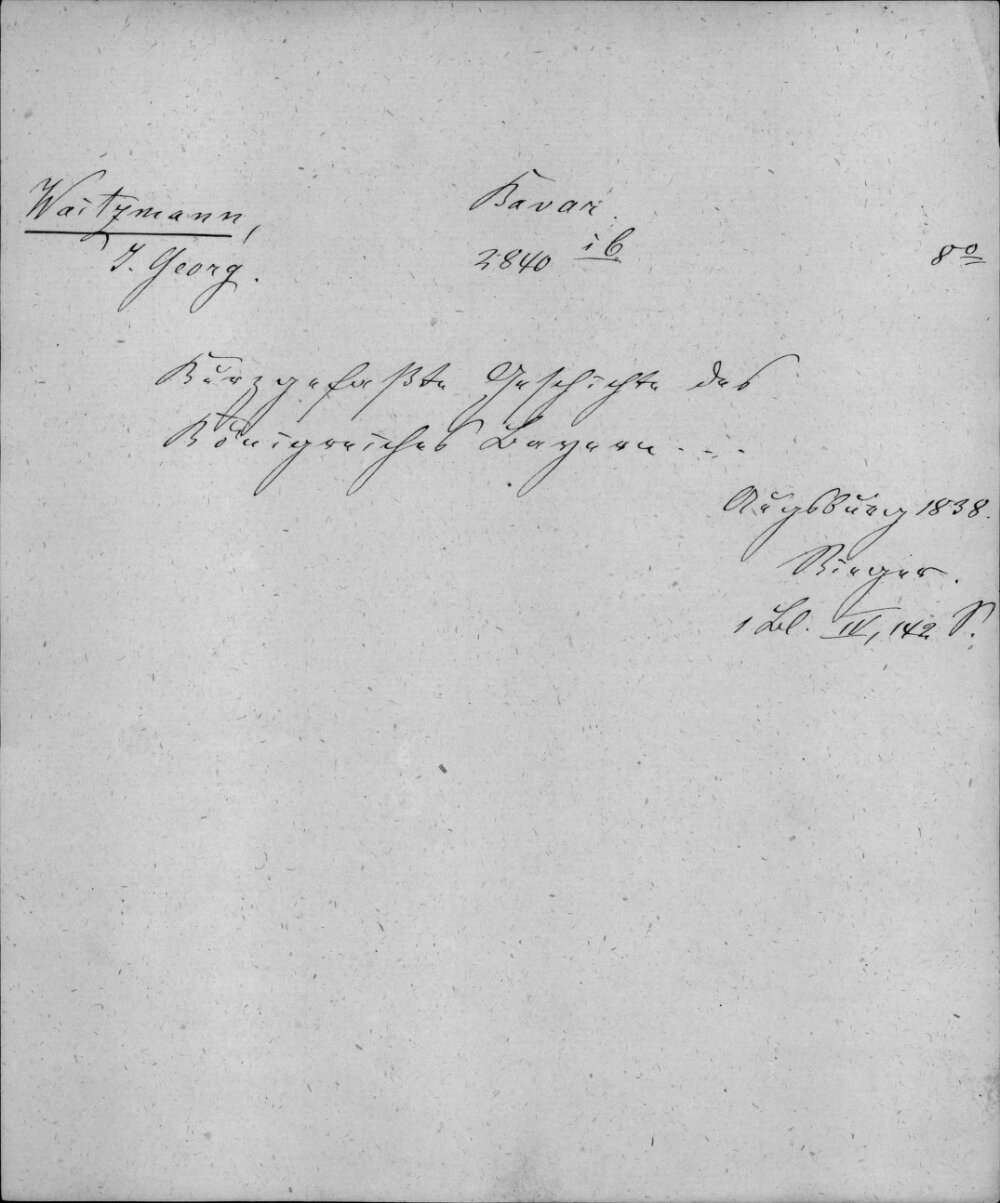 Waitzmann,
J. Georg.
Bavar.
2840 ib
8o
Kurzgefaßte Geschichte des
Königreiches Bayern. . .
Augsburg 1838.
Rieger.
1 Bl. IV, 142 S.